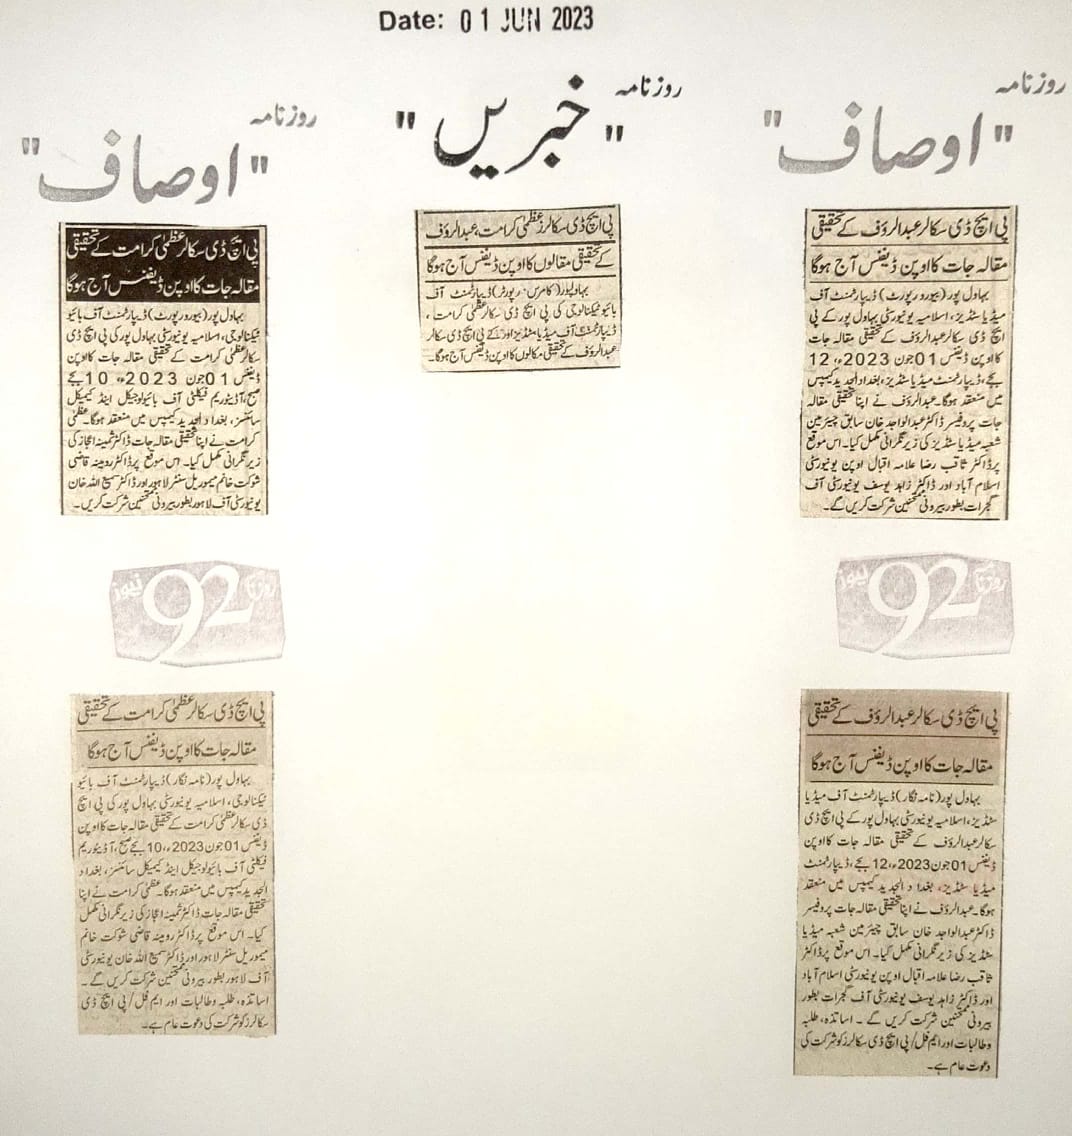 Date: 01 JUN 2023
روزنامہ
"اوصاف"
پی ایچ ڈی سکالر عبدالرؤف کے تحقیقی
مقالہ جات کا اوپن ڈیفنس آج ہوگا
بہاول پور (بیورو رپورٹ) ڈیپارٹمنٹ آف
میڈیا سٹڈیز، اسلامیہ یونیورسٹی بہاول پور کے پی
ایچ ڈی سکالر عبدالرؤف کے تحقیقی مقالہ جات
کا اوپن ڈیفنس 01 جون 2023ء، 12
بجے، ڈیپارٹمنٹ میڈیا سٹڈیز، بغداد الجدید کیمپس
میں منعقد ہوگا۔ عبدالرؤف نے اپنا تحقیقی مقالہ
جات پروفیسر ڈاکٹر عبدالواجد خان سابق چیئرمین
شعبہ میڈیا سٹڈیز کی زیر نگرانی مکمل کیا۔ اس موقع
پر ڈاکٹر ثاقب رضا علامہ اقبال اوپن یونیورسٹی
اسلام آباد اور ڈاکٹر زاہد یوسف یونیورسٹی آف
گجرات بطور بیرونی ممتحنین شرکت کریں گے۔
روزنامہ
"خبریں"
پی ایچ ڈی سکالرز عظمیٰ کرامت، عبدالرؤف
کے تحقیقی مقالوں کا اوپن ڈیفنس آج ہوگا
بہاولپور (کامرس رپورٹر) ڈیپارٹمنٹ آف
بائیو ٹیکنالوجی کی پی ایچ ڈی سکالر عظمیٰ کرامت،
ڈیپارٹمنٹ آف میڈیا سٹڈیز اور کے پی ایچ ڈی سکالر
عبدالرؤف کے تحقیقی مکالوں کا اوپن ڈیفنس آج ہوگا۔
روزنامہ
"اوصاف"
پی ایچ ڈی سکالر عظمیٰ کرامت کے تحقیقی
مقالہ جات کا اوپن ڈیفنس آج ہوگا
بہاول پور (بیورو رپورٹ) ڈیپارٹمنٹ آف بائیو
ٹیکنالوجی، اسلامیہ یونیورسٹی بہاول پور کی پی ایچ ڈی
سکالر عظمیٰ کرامت کے تحقیقی مقالہ جات کا اوپن
ڈیفنس 01 جون 2023ء، 10 بجے
صبح، آڈیٹوریم فیکلٹی آف بائیولوجیکل اینڈ کیمیکل
سائنسز، بغداد الجدید کیمپس میں منعقد ہوگا۔ عظمیٰ
کرامت نے اپنا تحقیقی مقالہ جات ڈاکٹر ثمینہ اعجاز کی
زیر نگرانی مکمل کیا۔ اس موقع پر ڈاکٹر رومینہ قاضی
شوکت خانم میموریل سنٹر لاہور اور ڈاکٹر سمیع اللہ خان
یونیورسٹی آف لاہور بطور بیرونی ممتحنین شرکت کریں۔
روزنامہ 92 نیوز
پی ایچ ڈی سکالر عبدالرؤف کے تحقیقی
مقالہ جات کا اوپن ڈیفنس آج ہوگا
بہاول پور (نامہ نگار) ڈیپارٹمنٹ آف میڈیا
سٹڈیز، اسلامیہ یونیورسٹی بہاول پور کے پی ایچ ڈی
سکالر عبدالرؤف کے تحقیقی مقالہ جات کا اوپن
ڈیفنس 01 جون 2023ء، 12 بجے، ڈیپارٹمنٹ
میڈیا سٹڈیز، بغداد الجدید کیمپس میں منعقد
ہوگا۔ عبدالرؤف نے اپنا تحقیقی مقالہ جات پروفیسر
ڈاکٹر عبدالواجد خان سابق چیئرمین شعبہ میڈیا
سٹڈیز کی زیر نگرانی مکمل کیا۔ اس موقع پر ڈاکٹر
ثاقب رضا علامہ اقبال اوپن یونیورسٹی اسلام آباد
اور ڈاکٹر زاہد یوسف یونیورسٹی آف گجرات بطور
بیرونی ممتحنین شرکت کریں گے۔ اساتذہ، طلبہ
وطالبات اور ایم فل/ پی ایچ ڈی سکالرز کو شرکت کی
دعوت عام ہے۔
روزنامہ 92 نیوز
پی ایچ ڈی سکالر عظمیٰ کرامت کے تحقیقی
مقالہ جات کا اوپن ڈیفنس آج ہوگا
بہاول پور (نامہ نگار) ڈیپارٹمنٹ آف بائیو
ٹیکنالوجی، اسلامیہ یونیورسٹی بہاول پور کی پی ایچ
ڈی سکالر عظمیٰ کرامت کے تحقیقی مقالہ جات کا اوپن
ڈیفنس 01 جون 2023ء، 10 بجے صبح، آڈیٹوریم
فیکلٹی آف بائیولوجیکل اینڈ کیمیکل سائنسز، بغداد
الجدید کیمپس میں منعقد ہوگا۔ عظمیٰ کرامت نے اپنا
تحقیقی مقالہ جات ڈاکٹر ثمینہ اعجاز کی زیر نگرانی مکمل
کیا۔ اس موقع پر ڈاکٹر رومینہ قاضی شوکت خانم
میموریل سنٹر لاہور اور ڈاکٹر سمیع اللہ خان یونیورسٹی
آف لاہور بطور بیرونی ممتحنین شرکت کریں گے۔
اساتذہ، طلبہ وطالبات اور ایم فل/ پی ایچ ڈی
سکالرز کو شرکت کی دعوت عام ہے۔